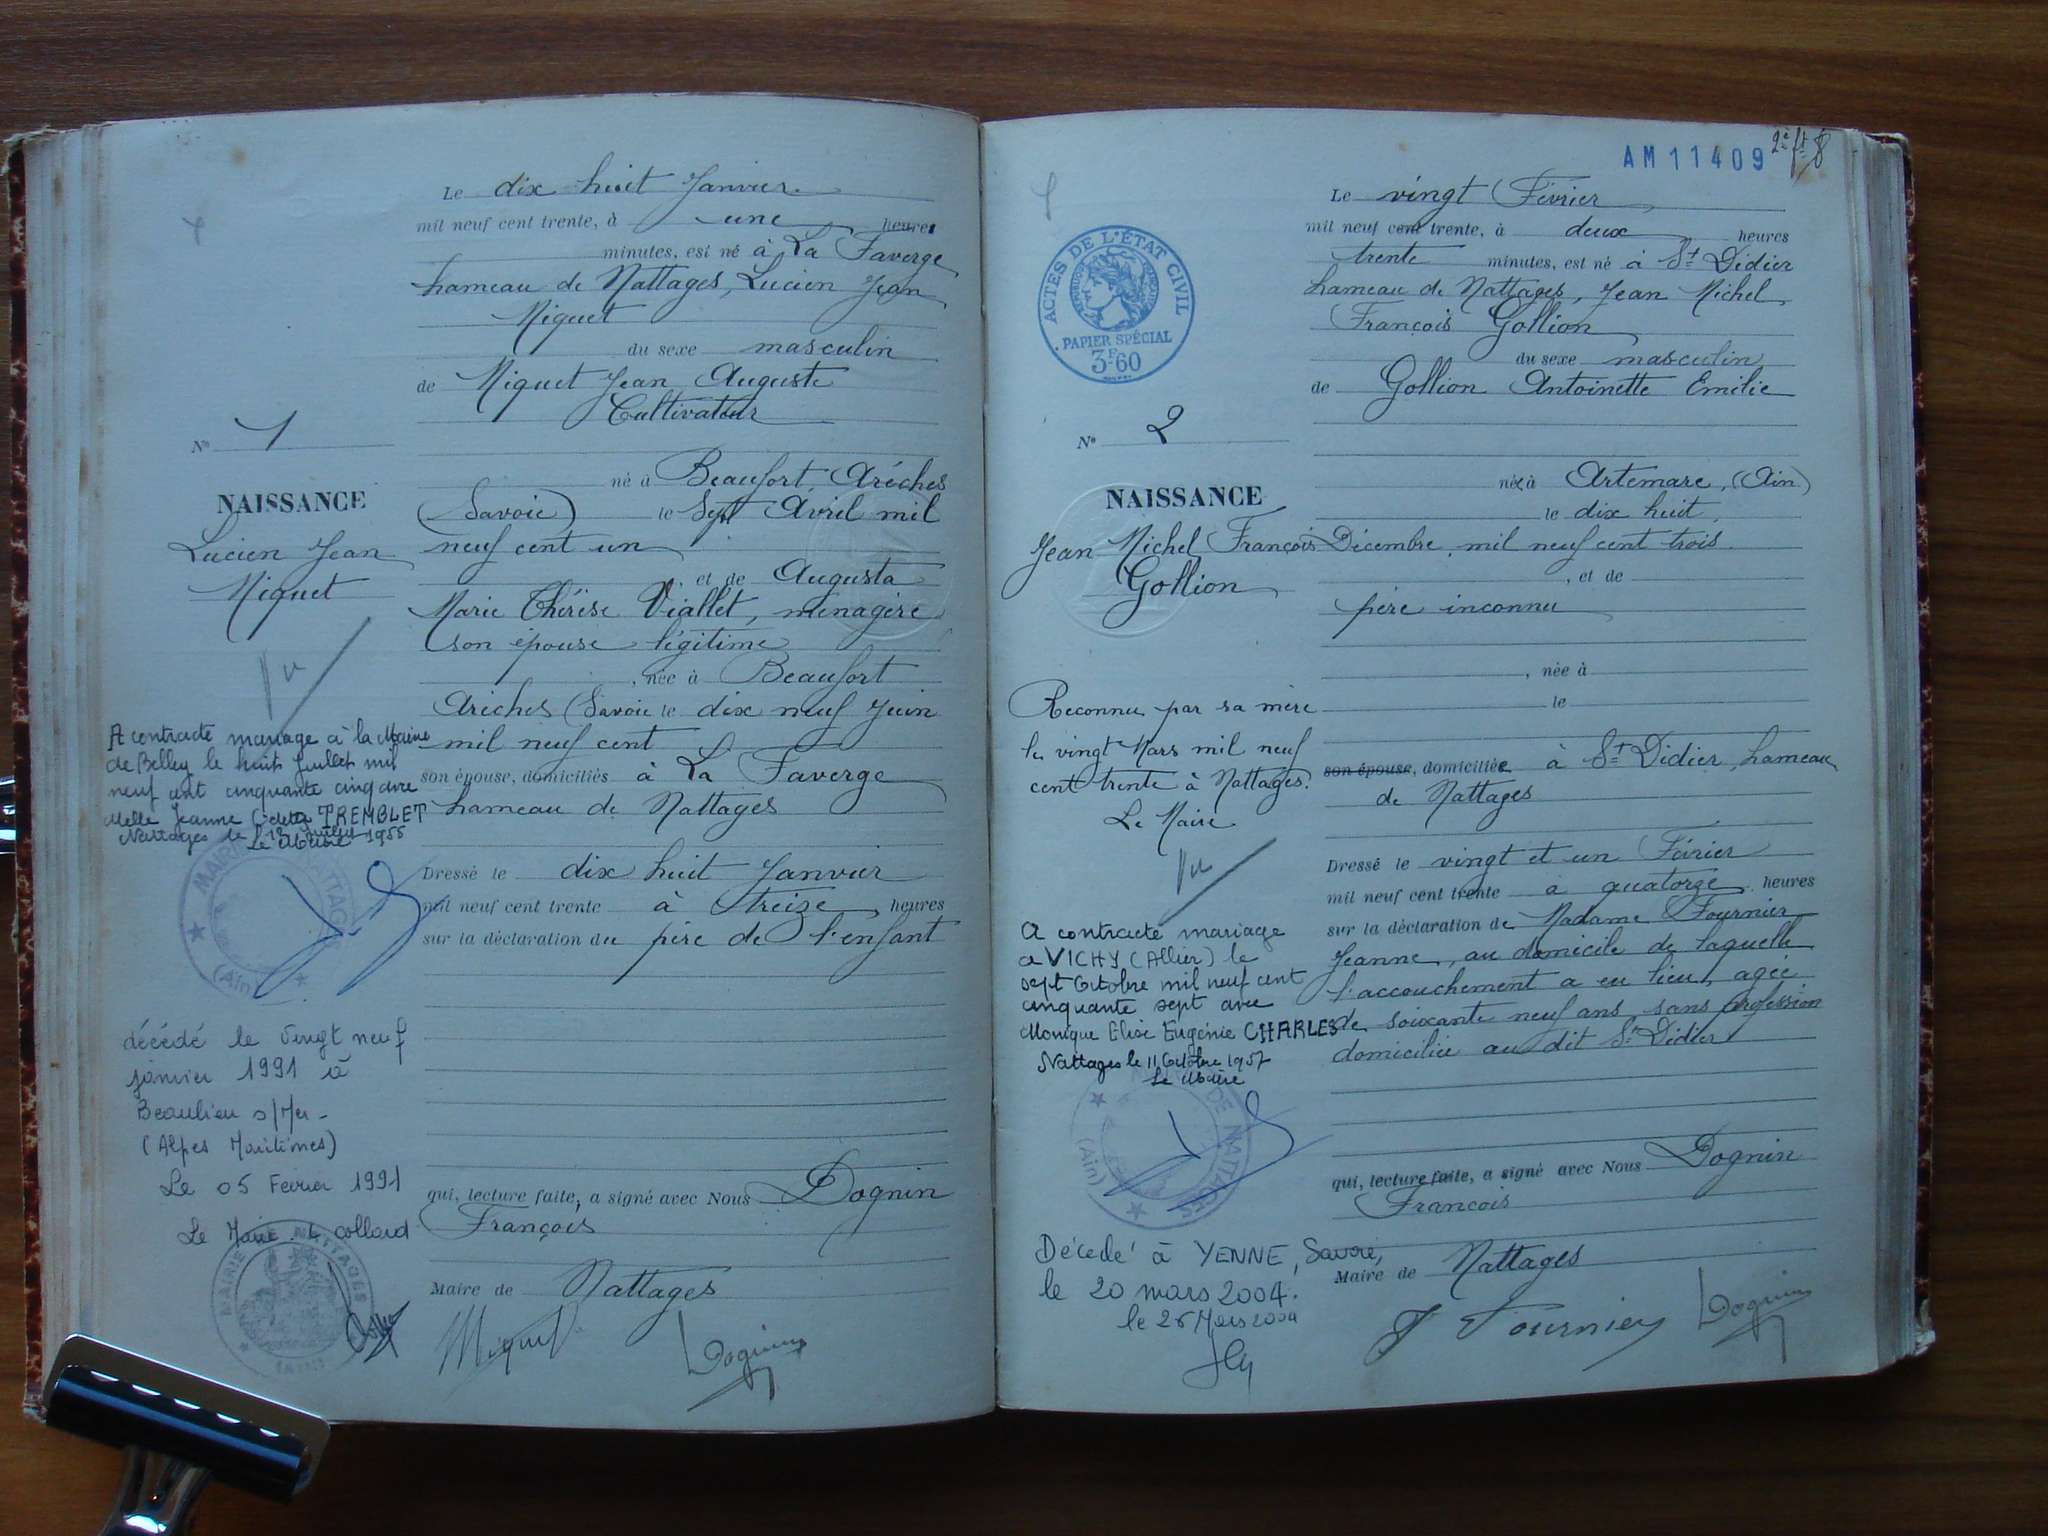 Le dix huit Janvier
mil neuf cent trente, à une heures
minutes, est né à La Faverge
hameau de Nattages, Lucien Jean
Miguet
du sexe masculin
de Miguet Jean Auguste
Cultivateur
né à Beaufort, Arêches
(Savoie) le Sept Avril mil
neuf cent un
, et de Augusta
Marie Thérèse Viallet, ménagère
son épouse légitime
, née à Beaufort
Arêches (Savoie le dix neuf Juin
mil neuf cent
son épouse, domiciliés à La Faverge
hameau de Nattages
Dressé le dix huit Janvier
mil neuf cent trente à treize heures
sur la déclaration du père de l'enfant
qui, lecture faite, a signé avec Nous Dognin
François
Maire de Nattages
Miguet
Dognin
N° 1
NAISSANCE
Lucien Jean
Miguet
Vu
A contracté mariage à la Mairie
de Belley le huit Juillet mil
neuf cent cinquante cinq avec
Melle Jeanne TREMBLET
Nattages le 12 Juillet 1955
Le Maire
MAIRIE NATTAGES
(Ain)
décédé le vingt neuf
janvier 1991 à
Beaulieu s/Mer -
(Alpes Maritimes)
Le 05 Février 1991
Le Maire. L collard
MAIRIE NATTAGES
(AIN)
AM 11409
2e ft 8
ACTES DE L'ÉTAT CIVIL
PAPIER SPÉCIAL
3F60
Le vingt Février
mil neuf cent trente, à deux heures
trente minutes, est né à St Didier
hameau de Nattages, Jean Michel
François Gollion
du sexe masculin
de Gollion Antoinette Emilie
née à Artemare, (Ain)
le dix huit
Décembre mil neuf cent trois
, et de
père inconnu
, née à
le
son épouse, domiciliée à St Didier, hameau
de Nattages
Dressé le vingt et un Février
mil neuf cent trente à quatorze heures
sur la déclaration de Madame Fournier
Jeanne, au domicile de laquelle
l'accouchement a eu lieu, agée
de soixante neuf ans sans profession
domiciliée au dit St Didier
qui, lecture faite, a signé avec Nous Dognin
François
Maire de Nattages
J Fournier
Dognin
N° 2
NAISSANCE
Jean Michel François
Gollion
Reconnu par sa mère
le vingt Mars mil neuf
cent trente à Nattages.
Le Maire
Vu
A contracté mariage
à VICHY (Allier) le
sept Octobre mil neuf cent
cinquante sept avec
Monique Elise Eugénie CHARLES
Nattages le 11 Octobre 1957
Le Maire
DE NATTAGES
(Ain)
Décédé à YENNE, Savoie,
le 20 mars 2004.
le 26 Mars 2004